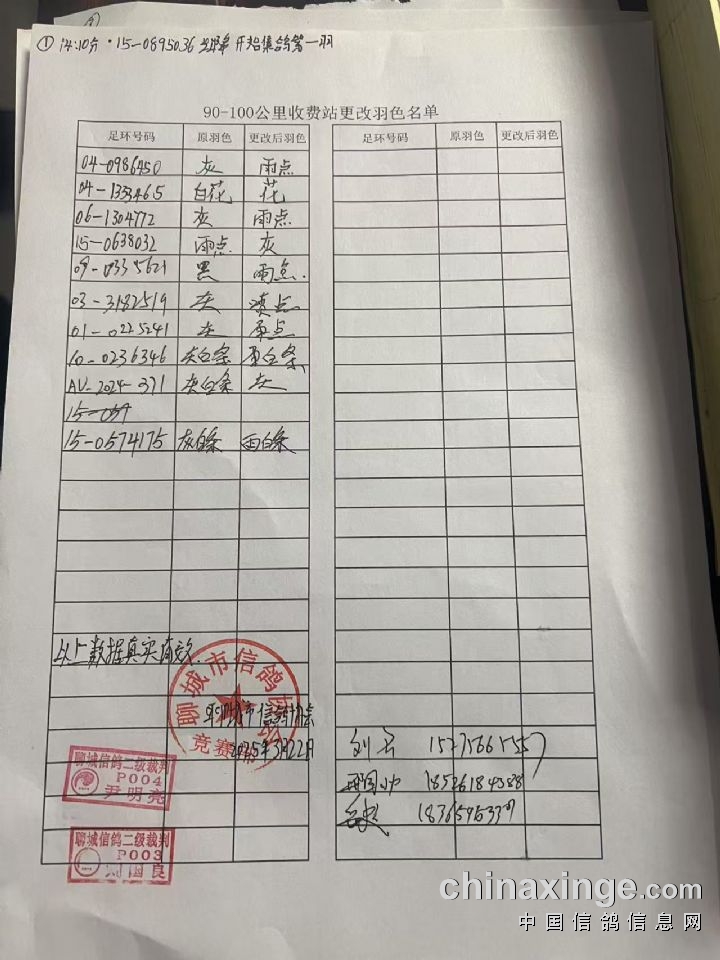 ① 14:10分·15-0895036 开始集鸽第一羽
90-100公里收费站更改羽色名单
足环号码 原羽色 更改后羽色 足环号码 原羽色 更改后羽色
04-0986450 灰 雨点
04-1353465 白花 花
06-1304772 灰 雨点
15-0638032 雨点 灰
09-0335621 黑 雨点.
03-3182519 灰
01-0225241 灰
10-0236346 灰白条
AU-2024-371 灰白条 灰
15-0574175 灰白条 雨白条
以上数据真实有效.
聊城市信鸽协会
聊城市信鸽协会
竞赛
2025年3月22日
聊城信鸽二级裁判
P004
尹明亮
聊城信鸽二级裁判
P003
刘国良
chinaxinge.com
中国信鸽信息网